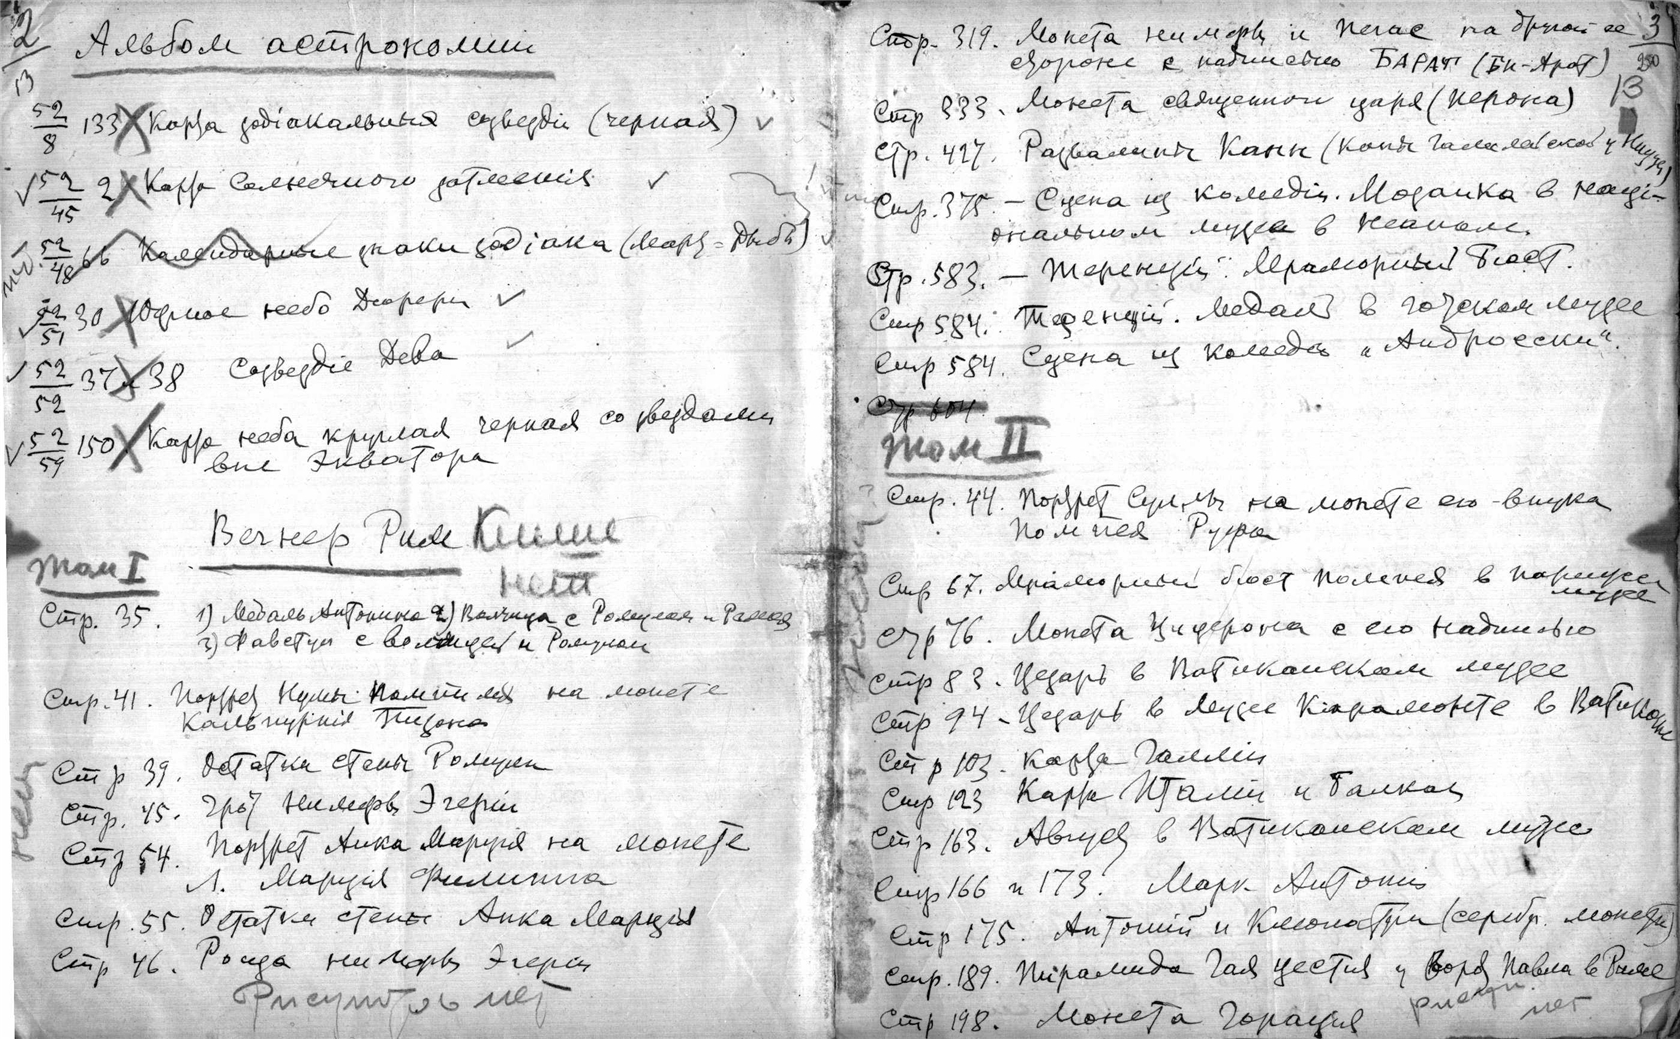 2
13
Альбом астрономии
52/8 133 Карта зодіакальныя созвездiя (черная)
52/45 2 Карта Солнечного затменія
52/48 66 Календарные знаки зодіака (Марѳ = Дѣвѣ)
52/51 30 Южное небо Дюрера
52/52 37 и 38 Созвездіе Дева
52/59 150 Карта неба круглая черная со звездами
вне Экватора
Вегнер Рим Книги
нет
Том I
Стр. 35. 1) Медаль Антонина 2) Волчица с Ромулом и Ремом
3) Фавстул с волчицей и Ромулом
Стр. 41. Портрет Нумы Помпилія на монете
Кальпурнія Пизона
Стр 39. Остатки стены Ромула
Стр. 45. Грот нимфы Эгеріи
Стр 54. Портрет Анка Марція на монете
Л. Марція Филиппа
Стр. 55. Остатки стены Анка Марція
Стр 46. Роща нимфы Эгеріи
Рисунков нет
3
250
13
Стр. 319. Монета нимфы и Пегас на другой ее
стороне с надписью БАРАТ (Бн-Арат)
Стр 333. Монета священного царя (Иерона)
Стр. 427. Развалины Канн (Каны Галилейской у
Стр. 375 – Сцена из комедіи. Мозаика в наці-
ональном музее в Неаполе.
Стр. 583. – Теренцій. Мраморный бюст.
Стр 584. Теренцій. Медаль в готском музее
Стр 584. Сцена из комедіи „Андроески“.
Стр 604.
Том II
Стр. 44. Портрет Суллы на монете его внука
Помпея Руфа
Стр 67. Мраморный бюст Помпея в париж
музее
Стр 76. Монета Цицерона с его надписью
Стр 83. Цезарь в Ватиканском музее
Стр 94 – Цезарь в Музее Кіарамонте в Ватикане
Стр 103. Карта Галліи
Стр 123 Карта Италіи и Балкан
Стр 163. Август в Ватиканском музее
Стр 166 и 173. Марк Антоній
Стр 175. Антоній и Клеопатра (серебр. монеты)
Стр. 189. Пирамида Гая Цестія у ворот Павла в Риме
Стр 198. Монета Горація
рисун.
нет